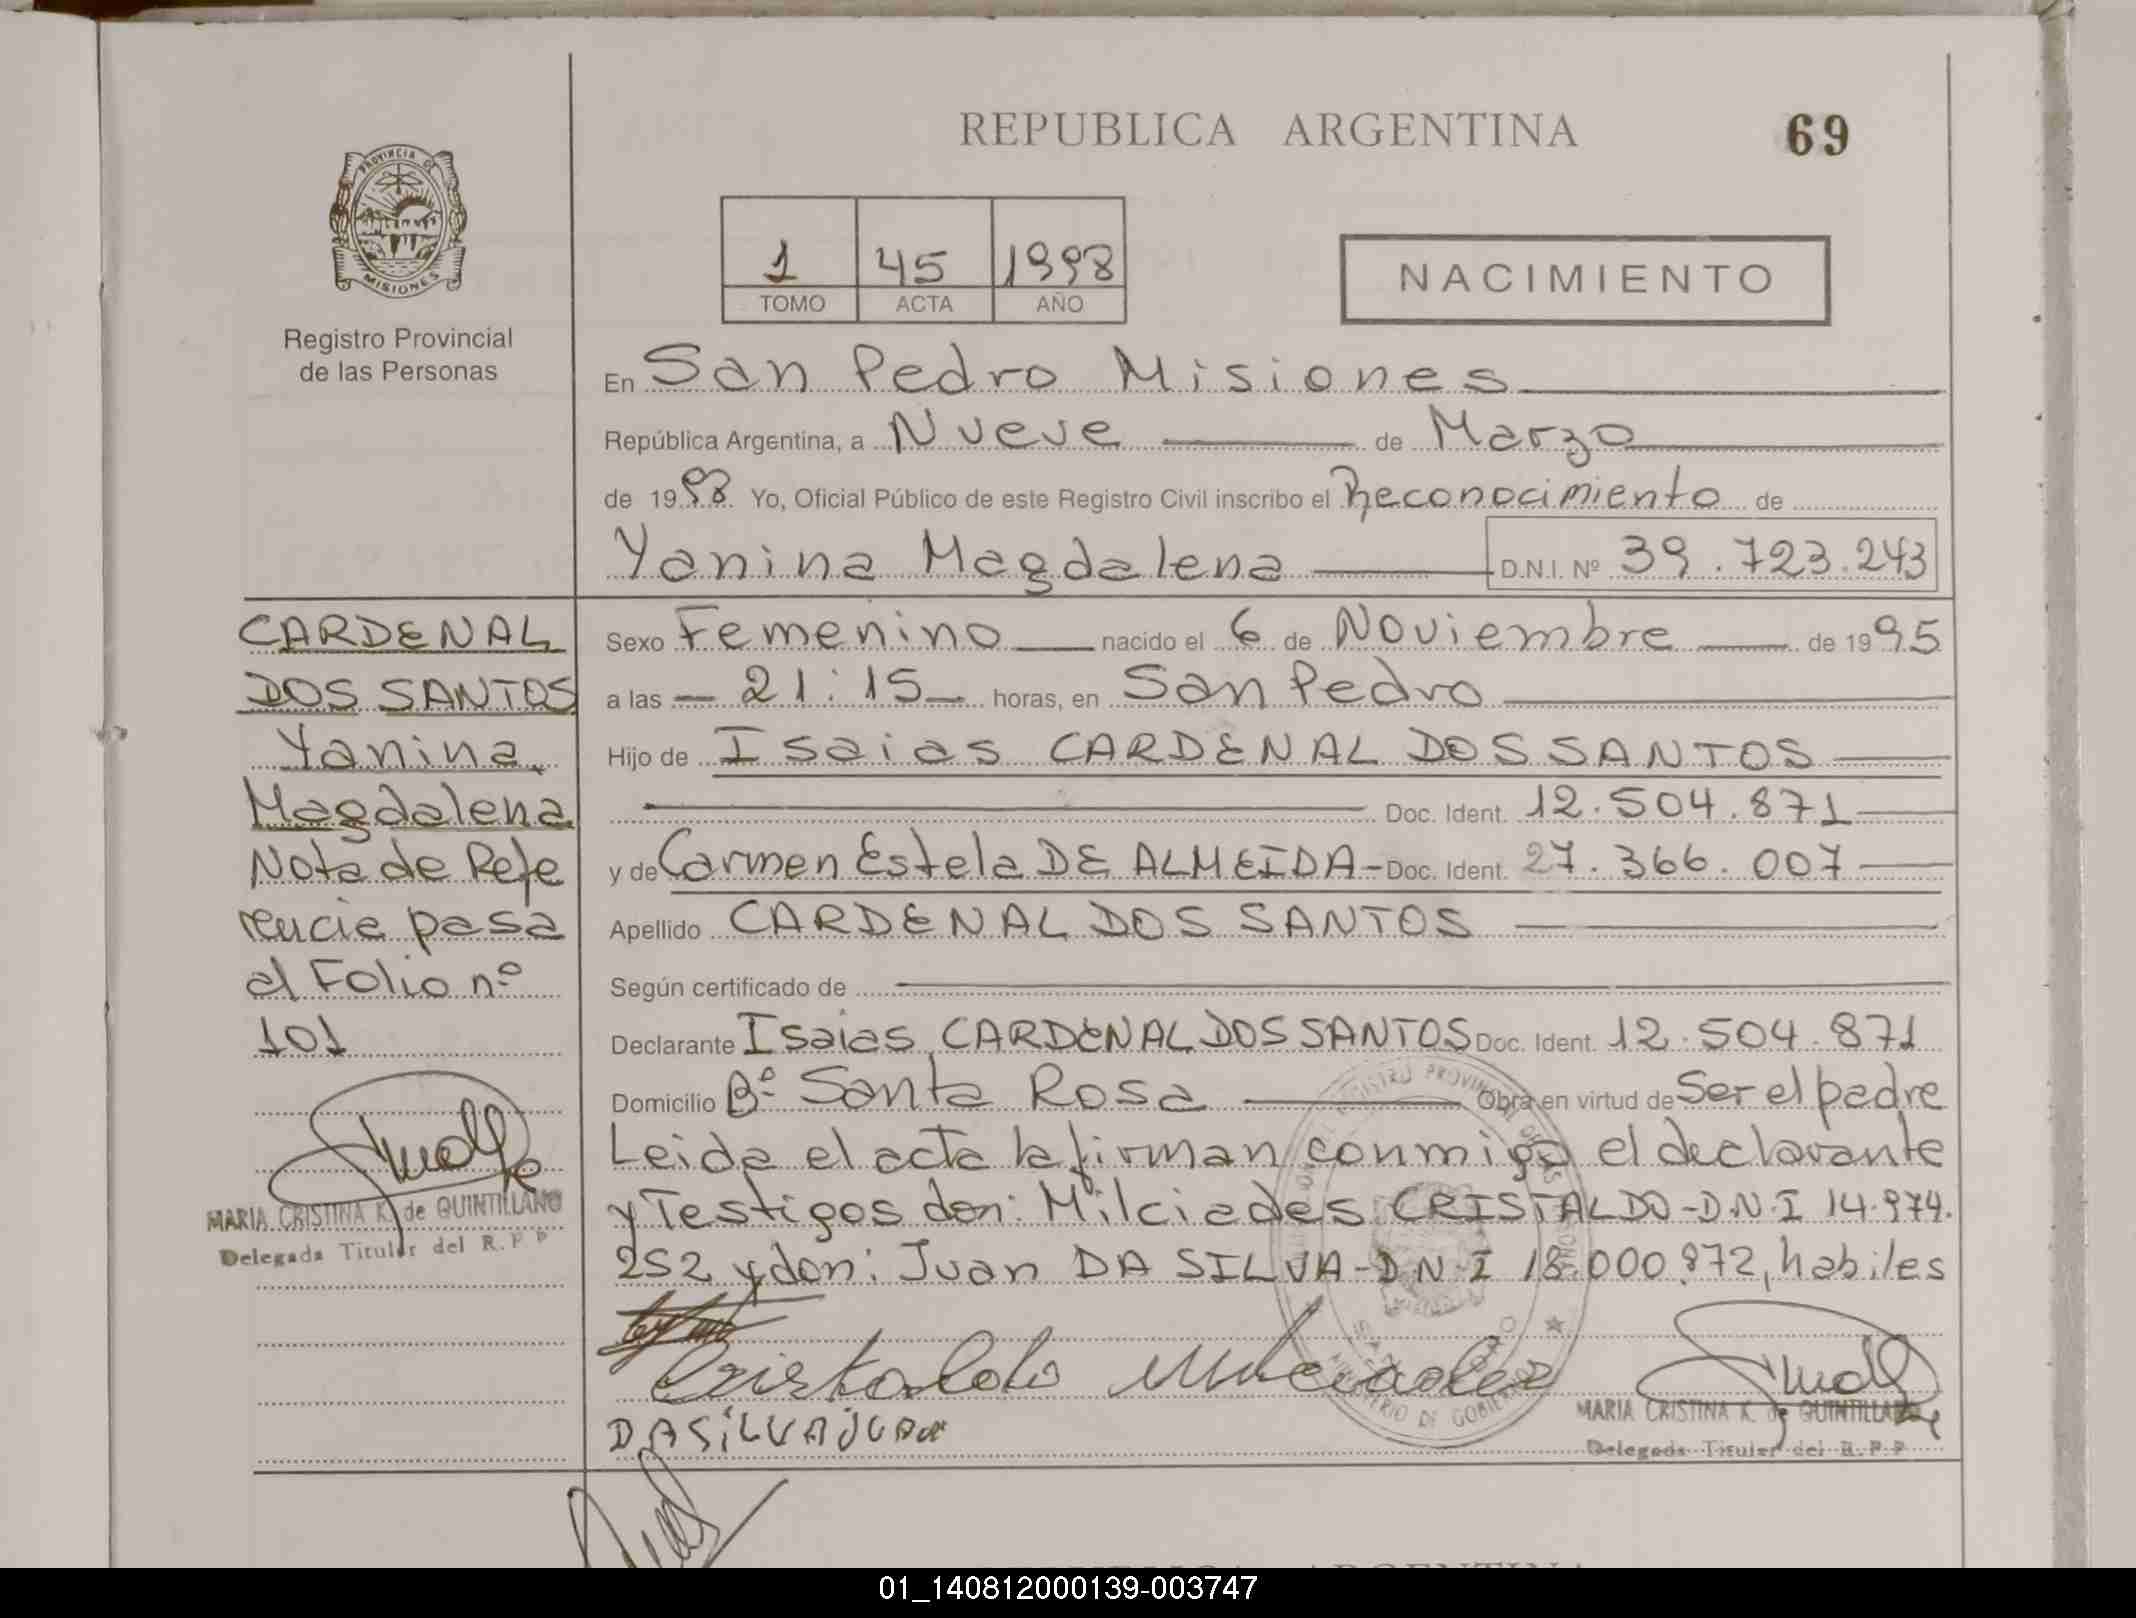 REPUBLICA ARGENTINA
69
PROVINCIA DE
MISIONES
Registro Provincial
de las Personas
1 45 1998
TOMO ACTA AÑO
NACIMIENTO
En San Pedro Misiones
República Argentina, a Nueve de Marzo
de 1998. Yo, Oficial Público de este Registro Civil inscribo el Reconocimiento de
Yanina Magdalena D.N.I. Nº 39.723.243
CARDENAL
DOS SANTOS
Yanina
Magdalena
Nota de Refe
rencia pasa
al Folio nº
101
MARIA CRISTINA K. de QUINTILLANO
Delegada Titular del R.P.P
Sexo Femenino nacido el 6 de Noviembre de 1995
a las 21:15 horas, en San Pedro
Hijo de Isaias CARDENAL DOS SANTOS
Doc. Ident. 12.504.871
y de Carmen Estela DE ALMEIDA- Doc. Ident. 27.366.007
Apellido CARDENAL DOS SANTOS
Según certificado de
Declarante Isaias CARDENAL DOS SANTOS Doc. Ident. 12.504.871
Domicilio Bº Santa Rosa Obra en virtud de Ser el padre
Leida el acta la firman conmigo el declarante
y Testigos don: Milciades CRISTALDO-D.N.I 14.974.
252 y don: Juan DA SILVA-D.N.I 18.000.872, habiles
Cristaldo Milciades
DASiLVAJUAN
MARIA CRISTINA K. de QUINTILLANO
Delegada Titular del R.P.P
01_140812000139-003747